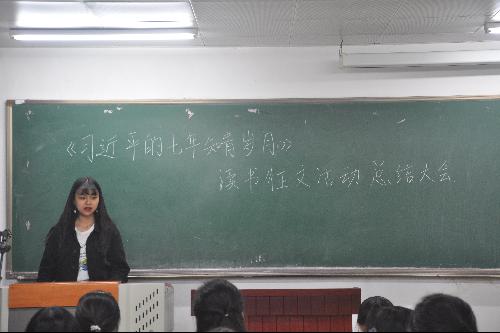 《习近平的七年知青岁月》
读书征文活动总结大会